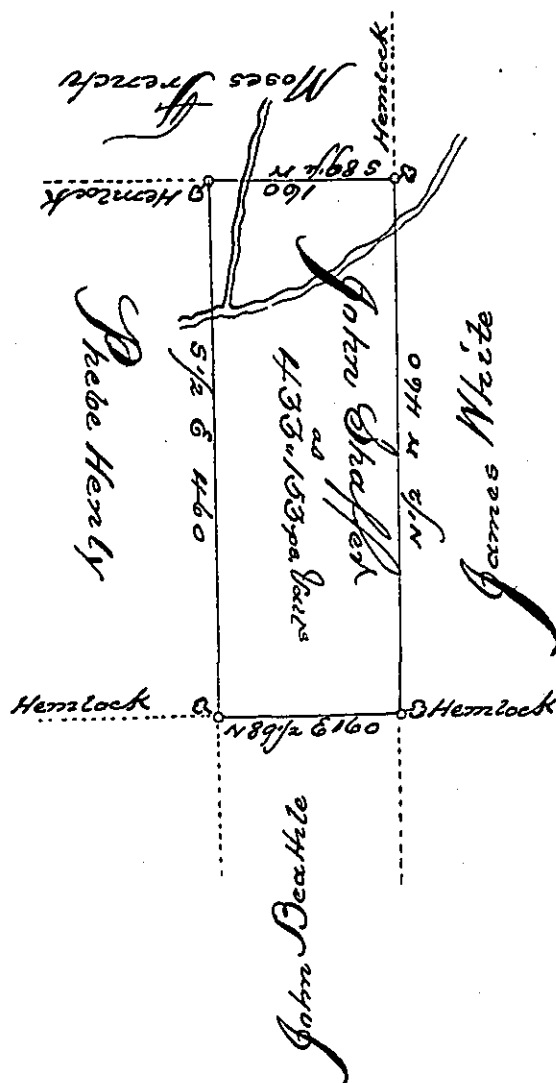 Moses French
Hemlock
Hemlock
S 89 1/2 W
160
Phebe Henly
S 1/2 E 460
John Shaffer
433"153 pa
N 1/2 W 460
James White
Hemlock
Hemlock
N 89 1/2 E 160
John Beattile